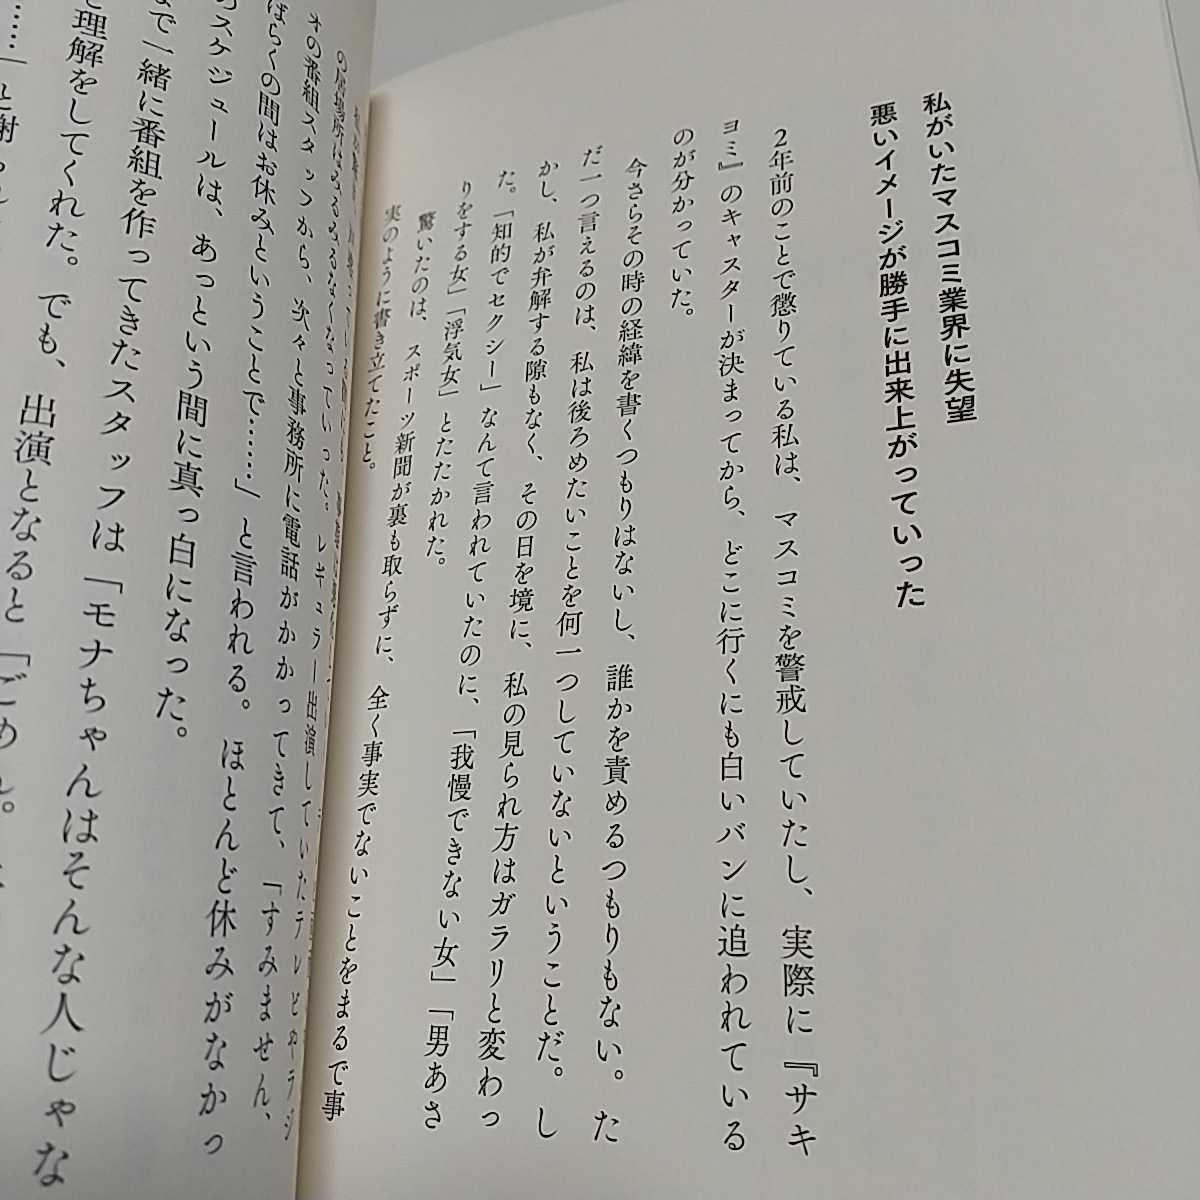 私がいたマスコミ業界に失望
悪いイメージが勝手に出来上がっていった
2年前のことで懲りている私は、マスコミを警戒していたし、実際に『サキ
ヨミ』のキャスターが決まってから、どこに行くにも白いバンに追われている
のが分かっていた。
今さらその時の経緯を書くつもりはないし、誰かを責めるつもりもない。た
だ一つ言えるのは、私は後ろめたいことを何一つしていないということだ。し
かし、私が弁解する隙もなく、その日を境に、私の見られ方はガラリと変わっ
た。「知的でセクシー」なんて言われていたのに、「我慢できない女」「男あさ
りをする女」「浮気女」とたたかれた。
驚いたのは、スポーツ新聞が裏も取らずに、全く事実でないことをまるで事
実のように書き立てたこと。
の居場所はみるみるなくなっていった。レギュラー出演していたテレビやラジ
オの番組スタッフから、次々と事務所に電話がかかってきて、「すみません、
ばらくの間はお休みということで……」と言われる。ほとんど休みがなかっ
のスケジュールは、あっという間に真っ白になった。
で一緒に番組を作ってきたスタッフは「モナちゃんはそんな人じゃな
理解をしてくれた。でも、出演となると「ごめん。
……」と謝られ